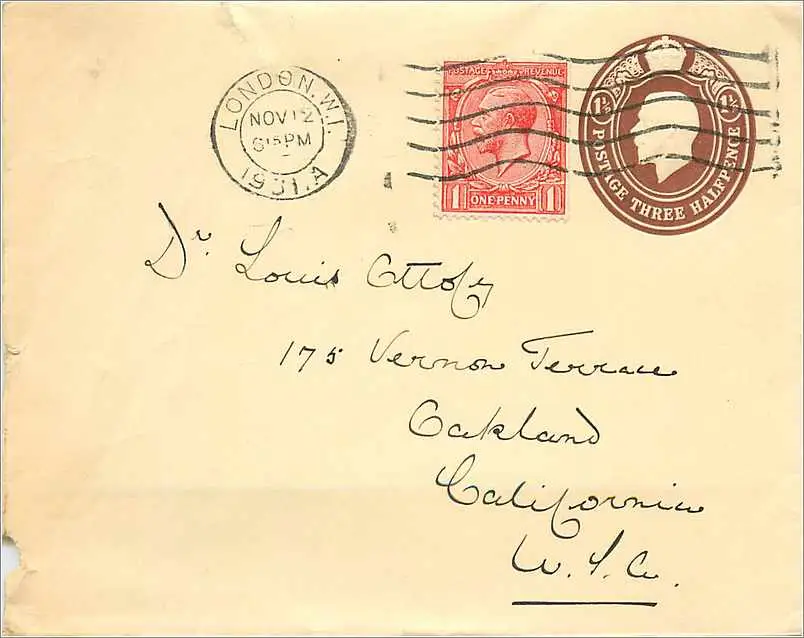 LONDON.W.1.
NOV 12
6 15 PM
1931.A
POSTAGE REVENUE
1 ONE PENNY 1
1½ 1½
POSTAGE THREE HALFPENCE
Dr. Louis Ottofy
175 Vernon Terrace
Oakland
California
U.S.A.